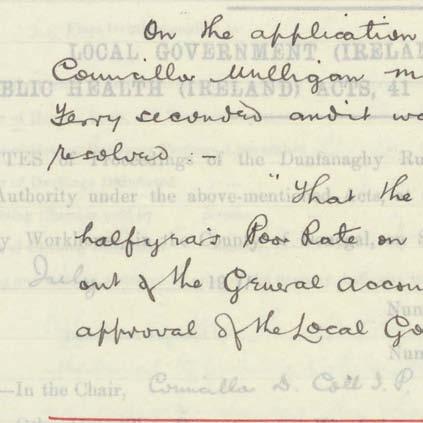 On the application
LOCAL GOVERNMENT (IRELA
Councillor Mulligan m
BLIC HEALTH (IRELAND) ACTS, 41
Ferry seconded and it wa
resolved :-
TES of Proceedings of the Dunfanaghy Ru
"That the
Authority under the above-mentioned Acts,
halfyra's Poor Rate on
y Workh
County of
July 19
out of the General accoun
Num
approval of the Local Go
Num
—In the Chair, Councillor D. Coll J.P.